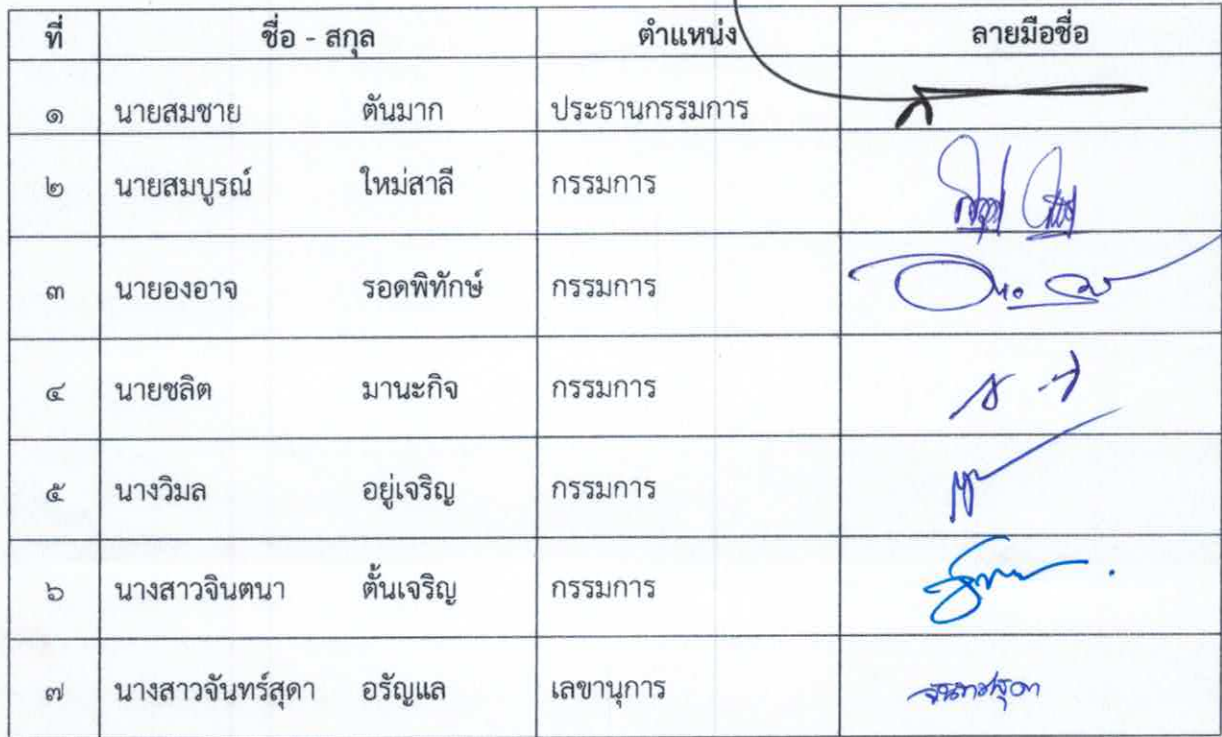 ที่ ชื่อ - สกุล ตำแหน่ง ลายมือชื่อ
๑ นายสมชาย ตันมาก ประธานกรรมการ
๒ นายสมบูรณ์ ใหม่สาลี กรรมการ
๓ นายองอาจ รอดพิทักษ์ กรรมการ
๔ นายชลิต มานะกิจ กรรมการ
๕ นางวิมล อยู่เจริญ กรรมการ
๖ นางสาวจินตนา ตั้นเจริญ กรรมการ
๗ นางสาวจันทร์สุดา อรัญแล เลขานุการ